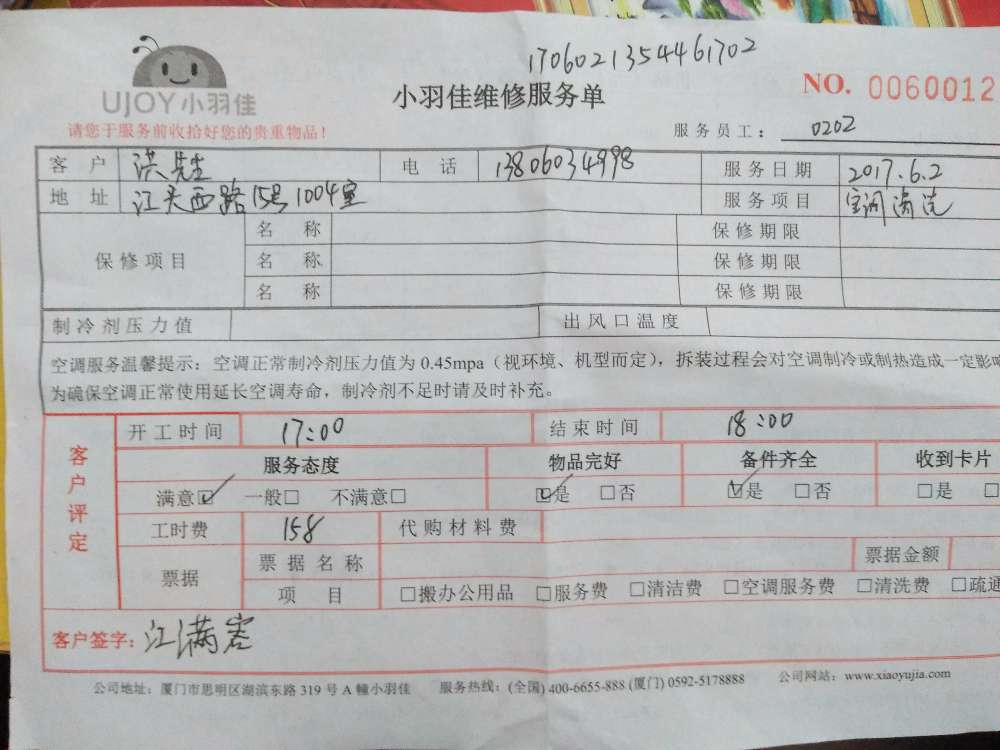 1706021354461702
UJOY小羽佳
小羽佳维修服务单
NO. 0060012
请您于服务前收拾好您的贵重物品！
服务员工： 0202
客 户 洪先生 电 话 13806034998 服务日期 2017.6.2
地 址 江头西路15号1004室 服务项目 空调清洗
保修项目
名 称 保修期限
名 称 保修期限
名 称 保修期限
制冷剂压力值 出风口温度
空调服务温馨提示：空调正常制冷剂压力值为 0.45mpa（视环境、机型而定），拆装过程会对空调制冷或制热造成一定影响
为确保空调正常使用延长空调寿命，制冷剂不足时请及时补充。
客户评定
开工时间 17:00 结束时间 18:00
服务态度 物品完好 备件齐全 收到卡片
满意☑ 一般□ 不满意□ ☑是 □否 ☑是 □否 □是 □
工时费 158 代购材料费
票据 票据名称 票据金额
项 目 □搬办公用品 □服务费 □清洁费 □空调服务费 □清洗费 □疏通
客户签字：江满
公司地址：厦门市思明区湖滨东路 319 号 A 幢小羽佳 服务热线：(全国) 400-6655-888 (厦门) 0592-5178888 公司网站：www.xiaoyujia.com